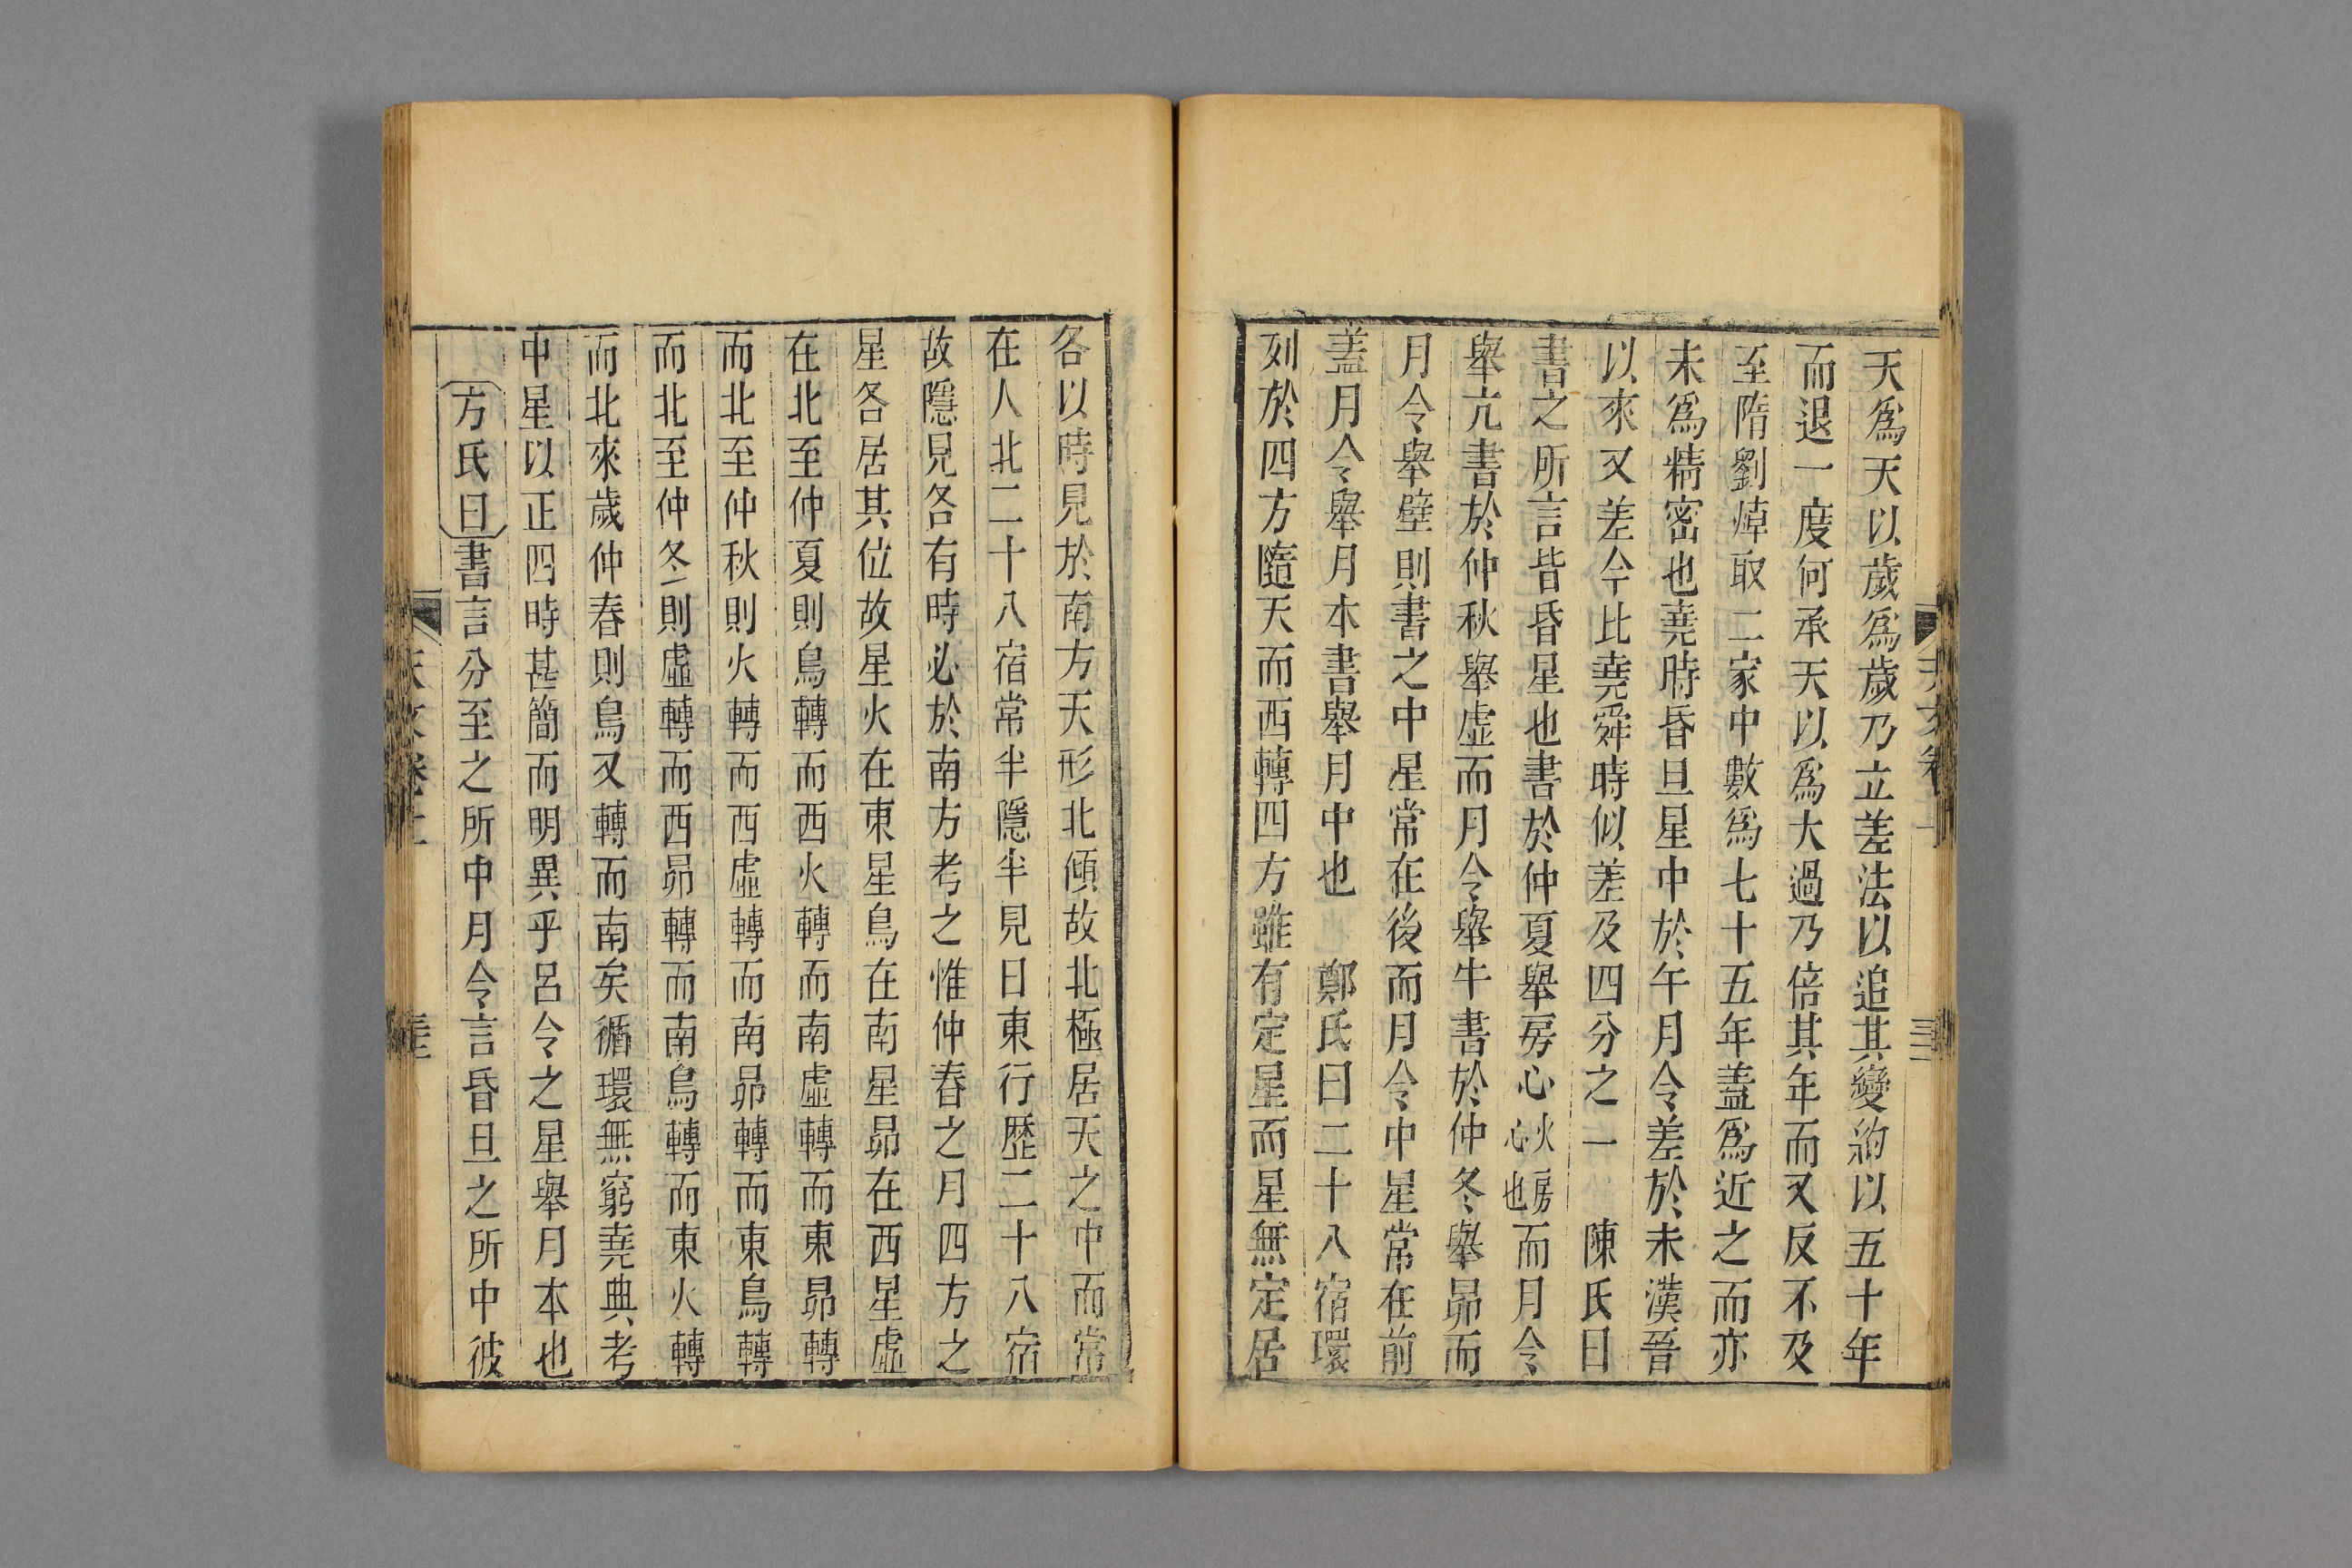 天爲天以歲爲歲乃立差法以追其變約以五十年
而退一度何承天以爲大過乃倍其年而又反不及
至隋劉焯取二家中數爲七十五年蓋爲近之而亦
未爲精密也堯時昏旦星中於午月令差於未漢晉
以來又差今比堯舜時似差及四分之一 陳氏曰
書之所言皆昏星也書於仲夏舉房心火房心也而月令
舉亢書於仲秋舉虛而月令舉牛書於仲冬舉昴而
月令舉壁則書之中星常在後而月令中星常在前
蓋月令舉月本書舉月中也 鄭氏曰二十八宿環
列於四方隨天而西轉四方雖有定星而星無定居
各以時見於南方天形北傾故北極居天之中而常
在人北二十八宿常半隱半見日東行歷二十八宿
故隱見各有時必於南方考之惟仲春之月四方之
星各居其位故星火在東星鳥在南星昴在西星虛
在北至仲夏則鳥轉而西火轉而南虛轉而東昴轉
而北至仲秋則火轉而西虛轉而南昴轉而東鳥轉
而北至仲冬則虛轉而西昴轉而南鳥轉而東火轉
而北來歲仲春則鳥又轉而南矣循環無窮堯典考
中星以正四時甚簡而明異乎呂令之星舉月本也
方氏曰書言分至之所中月令言昏旦之所中彼